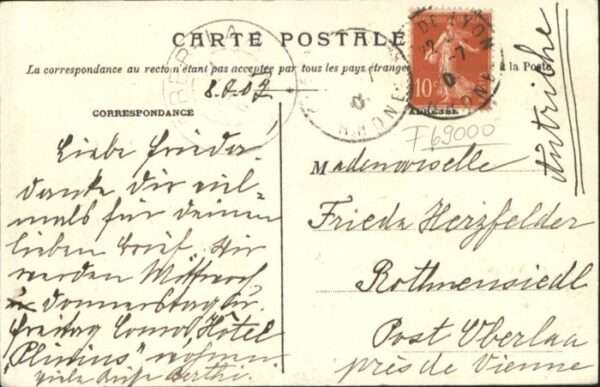 CARTE POSTALE
La correspondance au recto n'étant pas acceptée par tous les pays étrangers à la Poste
CORRESPONDANCE
Liebe Frieda!
danke Dir viel-
mals für Deinen
lieben Brief. Wir
werden Mittwoch
Donnerstag
Freitag Como Hôtel
"Plinius" wohnen
viele
F69000
Mademoiselle
Frieda Herzfelder
Rothneusiedl
Post Oberlaa
près de Vienne
Autriche
10
RHONE